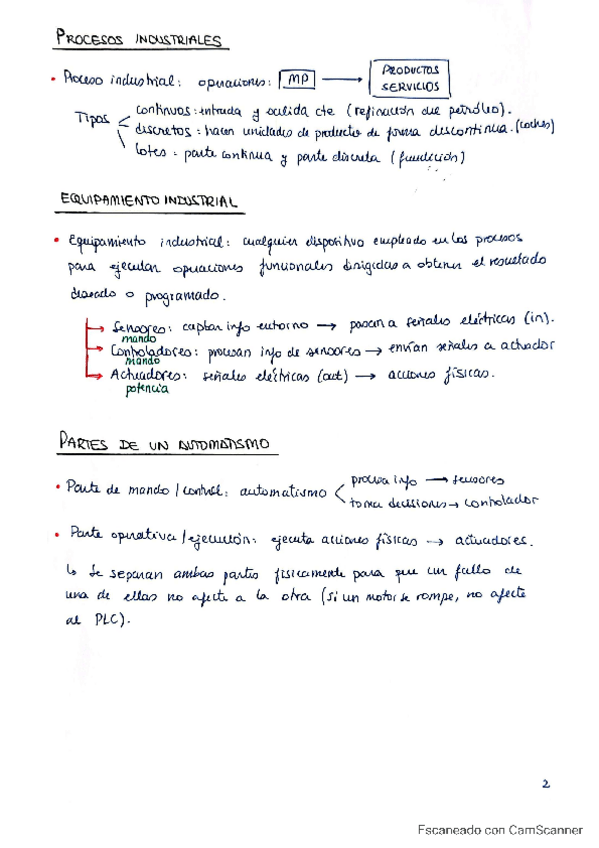 PROCESOS INDUSTRIALES
• Proceso industrial: operaciones: MP → PRODUCTOS SERVICIOS
Tipos
continuos: entrada y salida cte (refinación del petróleo).
discretos: hacen unidades de producto de forma discontinua. (coches)
lotes: parte continua y parte discreta (fundición)
EQUIPAMIENTO INDUSTRIAL
• Equipamiento industrial: cualquier dispositivo empleado en los procesos
para ejecutar operaciones funcionales dirigidas a obtener el resultado
deseado o programado.
Sensores: captan info entorno → pasan a señales eléctricas (in).
mando
Controladores: procesan info de sensores → envían señales a actuador
mando
Actuadores: señales eléctricas (out) → acciones físicas.
potencia
PARTES DE UN AUTOMATISMO
• Parte de mando / control: automatismo
procesa info → sensores
toma decisiones → controlador
• Parte operativa / ejecución: ejecuta acciones físicas → actuadores.
↳ Se separan ambas partes físicamente para que un fallo de
una de ellas no afecte a la otra (si un motor se rompe, no afecte
al PLC).
2
Escaneado con CamScanner